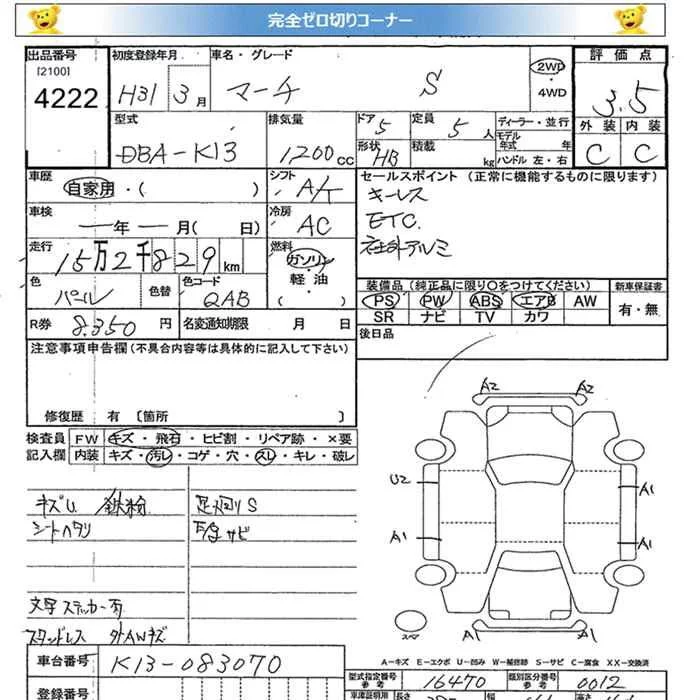 完全ゼロ切りコーナー
出品番号 初度登録年月 車名・グレード 2WD 評価点
[2100] 4WD
4222 H31 3月 マーチ S 3.5
型式 排気量 ドア 5 定員 5人 ディーラー・並行 外装 内装
モデル年式 年
DBA-K13 1200cc 形状 HB 積載 kg ハンドル 左・右 C C
車歴 シフト セールスポイント (正常に機能するものに限ります)
自家用・( ) A/T キーレス
車検 冷房 ETC.
年 月( 日) AC 社外アルミ
走行 燃料
15万2千829km ガソリン
軽・油
( )
色 色替 色コード 装備品(純正品に限り○をつけてください) 新車保証書
パール QAB PS PW ABS エアB AW 有・無
SR ナビ TV カワ
R券 8.350円 名変通知期限 月 日 後日品
注意事項申告欄(不具合内容等は具体的に記入して下さい)
修復歴 有 [箇所 ]
検査員 FW キズ・飛石・ヒビ割・リペア跡・×要
記入欄 内装 キズ・汚レ・コゲ・穴・スレ・キレ・破レ
キズU 鉄粉 足廻りS
シートヘタリ 下廻サビ
文字ステッカー有
スタンドレス 外AWキズ
A2 A2
U2 A1
A1 A1
A2 A2
スペア
A-キズ E-エクボ U-凹み W-補修跡 S-サビ C-腐食 XX-交換済
車台番号 K13-083070
型式指定番号 参考 16470 類別区分番号 参考 0012
登録番号
車庫証明用 長さ 幅 高さ